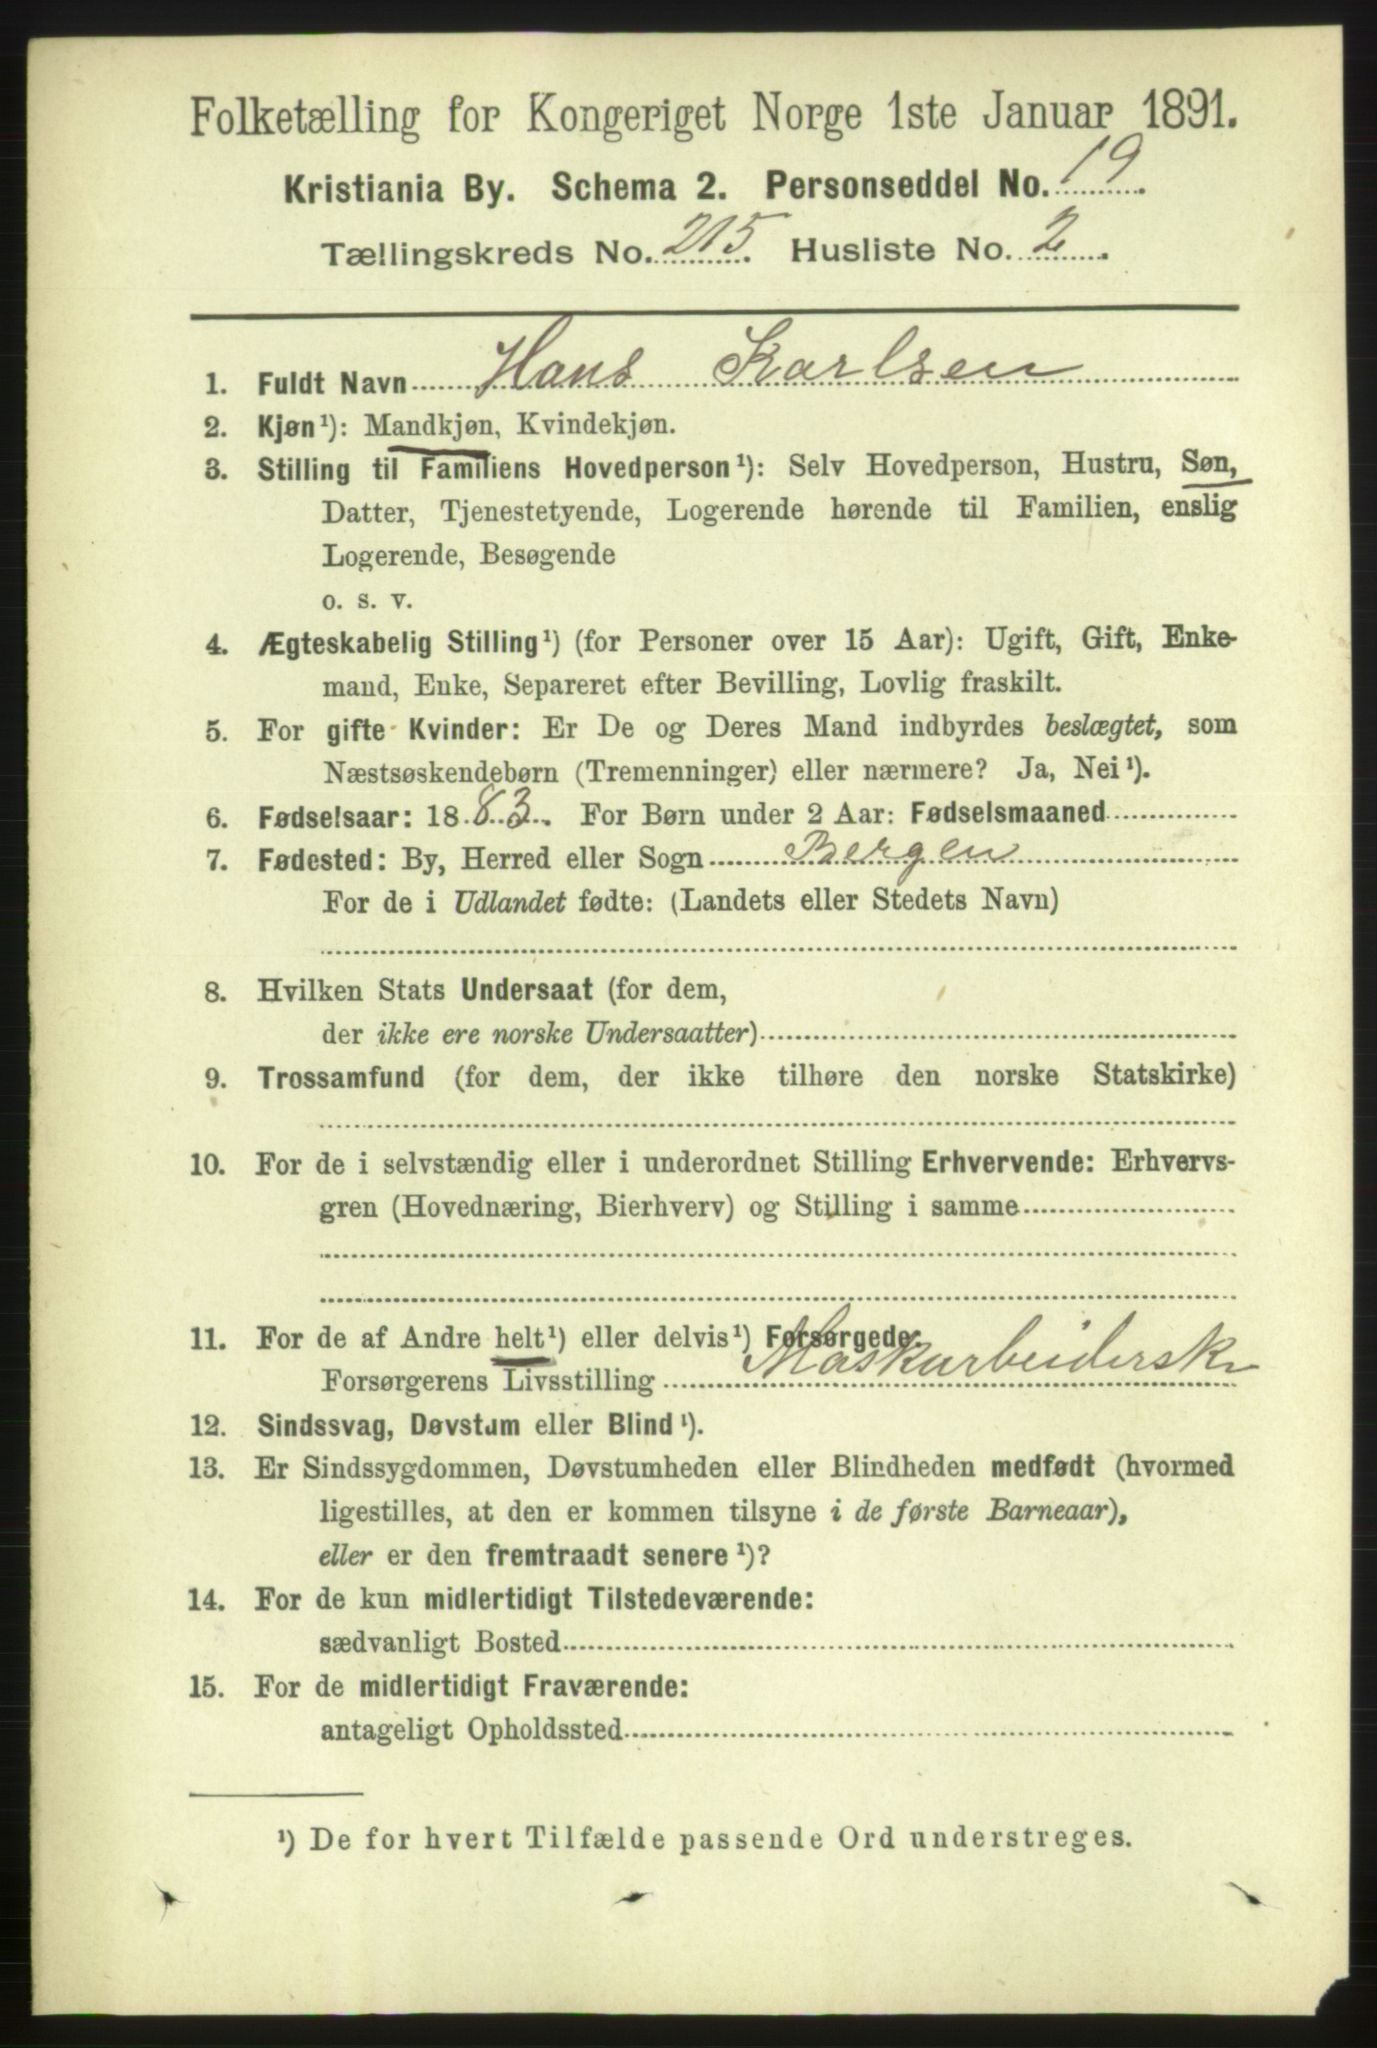 Folketælling for Kongeriget Norge 1ste Januar 1891.
Kristiania By. Schema 2. Personseddel No. 19.
Tællingskreds No. 215. Husliste No. 2.
1. Fuldt Navn Hans Karlsen
2. Kjøn¹): Mandkjøn, Kvindekjøn.
3. Stilling til Familiens Hovedperson¹): Selv Hovedperson, Hustru, Søn,
Datter, Tjenestetyende, Logerende hørende til Familien, enslig
Logerende, Besøgende
o. s. v.
4. Ægteskabelig Stilling¹) (for Personer over 15 Aar): Ugift, Gift, Enke-
mand, Enke, Separeret efter Bevilling, Lovlig fraskilt.
5. For gifte Kvinder: Er De og Deres Mand indbyrdes beslægtet, som
Næstsøskendebørn (Tremenninger) eller nærmere? Ja, Nei¹).
6. Fødselsaar: 1883. For Børn under 2 Aar: Fødselsmaaned
7. Fødested: By, Herred eller Sogn Bergen
For de i Udlandet fødte: (Landets eller Stedets Navn)
8. Hvilken Stats Undersaat (for dem,
der ikke ere norske Undersaatter)
9. Trossamfund (for dem, der ikke tilhøre den norske Statskirke)
10. For de i selvstændig eller i underordnet Stilling Erhvervende: Erhvervs-
gren (Hovednæring, Bierhverv) og Stilling i samme
11. For de af Andre helt¹) eller delvis¹) Forsørgede:
Forsørgerens Livsstilling Maskarbeiderske
12. Sindssvag, Døvstum eller Blind¹).
13. Er Sindssygdommen, Døvstumheden eller Blindheden medfødt (hvormed
ligestilles, at den er kommen tilsyne i de første Barneaar),
eller er den fremtraadt senere¹)?
14. For de kun midlertidigt Tilstedeværende:
sædvanligt Bosted
15. For de midlertidigt Fraværende:
antageligt Opholdssted
¹) De for hvert Tilfælde passende Ord understreges.